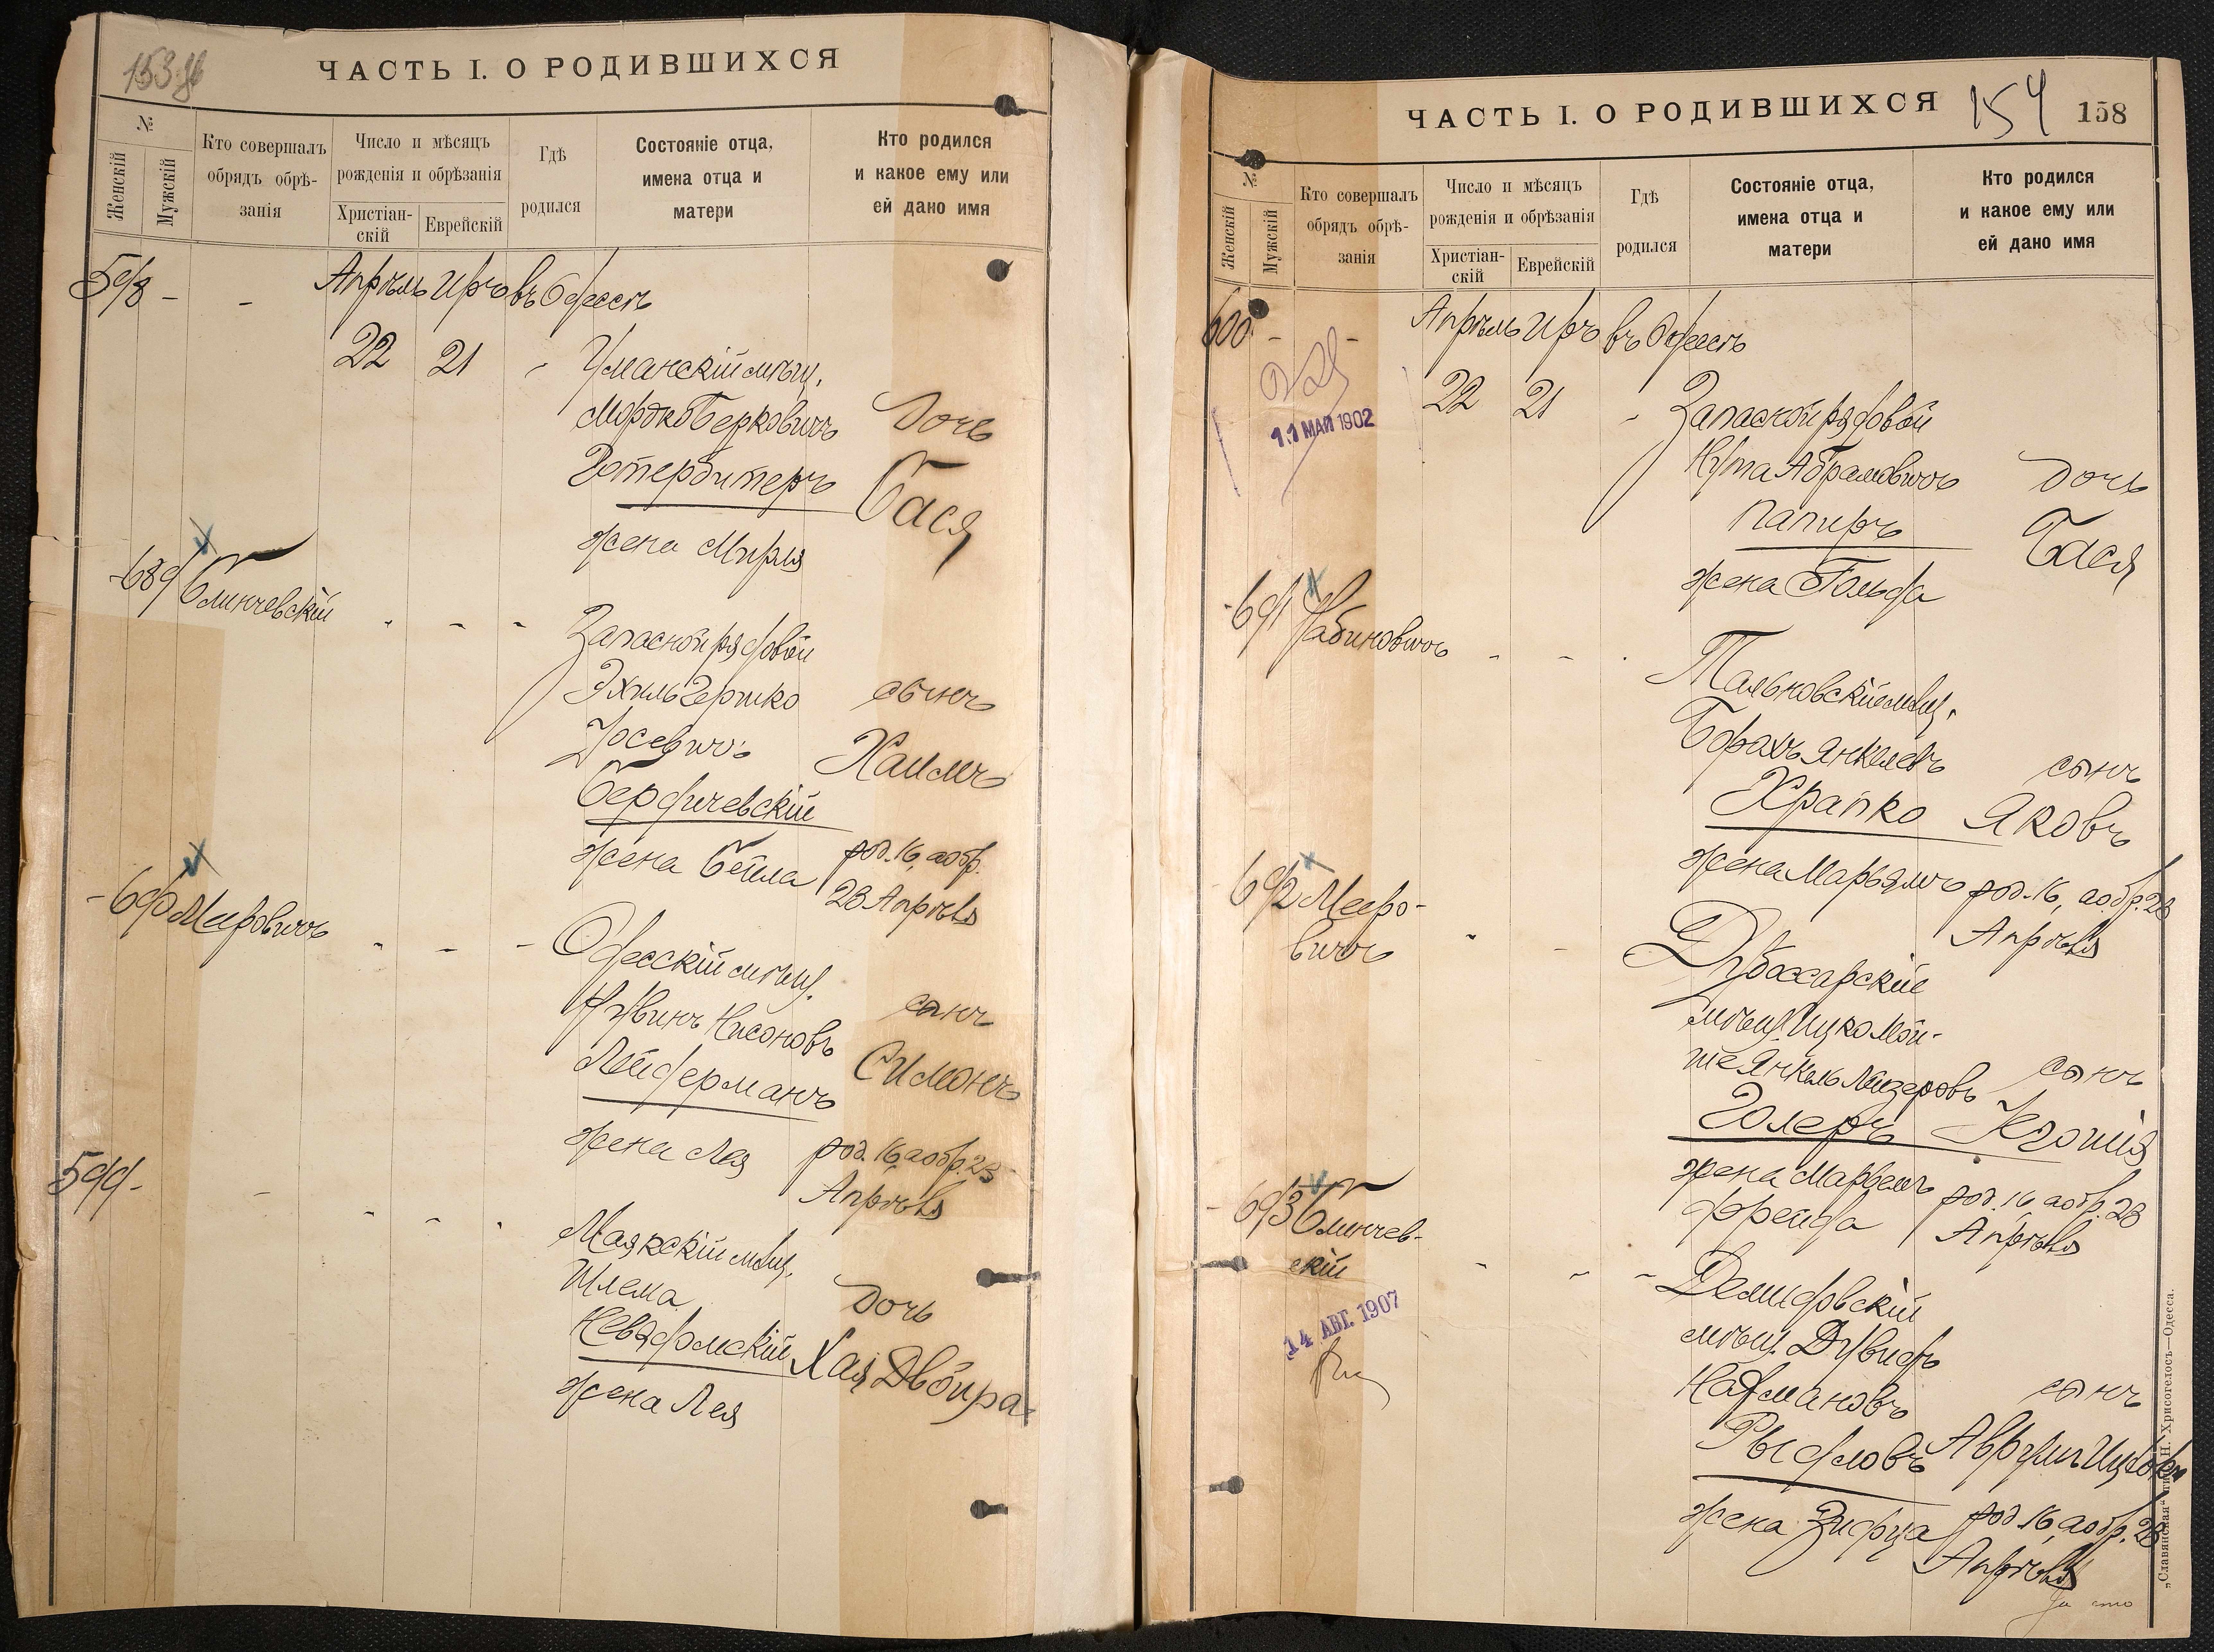 ЧАСТЬ I. О РОДИВШИХСЯ
№
Женскій
Мужскій
Кто совершалъ
обрядъ обрѣ-
занія
Число и мѣсяцъ
рожденія и обрѣзанія
Христіан-
скій
Еврейскій
Гдѣ
родился
Состояніе отца,
имена отца и
матери
Кто родился
и какое ему или
ей дано имя
598 - - Апрѣль Иръ въ Одессѣ
22 21 - Уманскій мѣщ.
Мордко Берковичъ
дочь
жена Мирля
Бася
689 Блинчевскій - - -
Запасной рядовой
Эхиль Гершко
Іосевичъ
Бердичевскій
жена Бейла
сынъ
Хаимъ
род. 16, а обр.
23 Апрѣля
690 Мировичъ - - -
Одесскій мѣщ.
Рувинъ Нисоновъ
Лейдерманъ
жена Лея
сынъ
Симонъ
род. 16 а обр. 23
Апрѣля
599 - - - - -
Маякскій мѣщ.
Шлема
жена Лея
дочь
Хая Двойра
ЧАСТЬ I. О РОДИВШИХСЯ
154
158
№
Женскій
Мужскій
Кто совершалъ
обрядъ обрѣ-
занія
Число и мѣсяцъ
рожденія и обрѣзанія
Христіан-
скій
Еврейскій
Гдѣ
родился
Состояніе отца,
имена отца и
матери
Кто родился
и какое ему или
ей дано имя
600 - - Апрѣль Иръ въ Одессѣ
11 МАЙ 1902
22 21 - Запасной рядовой
Нута Абрамовичъ
Папиръ
жена Гольда
дочь
Бася
691 Рабиновичъ - - -
Тальновскій мѣщ.
Борахъ Янкелевъ
Храпко
жена Марьямъ
сынъ
Яковъ
род. 16, а обр. 23
Апрѣля
692 Мееро-
вичъ - -
Дубоссарскій
мѣщ. Ицко Мой-
ше Янкель Лейзеровъ
Голеръ
жена Марьемъ
Фрейда
сынъ
род. 16 а обр. 23
Апрѣля
693 Блинчев-
скій - - -
14 АВГ. 1907
Демидовскій
мѣщ. Дувидъ
Нахмановъ
жена
сынъ
род. 16 а обр. 23
Апрѣля
„Славянская“ тип. Н. Хрисогелосъ—Одесса.